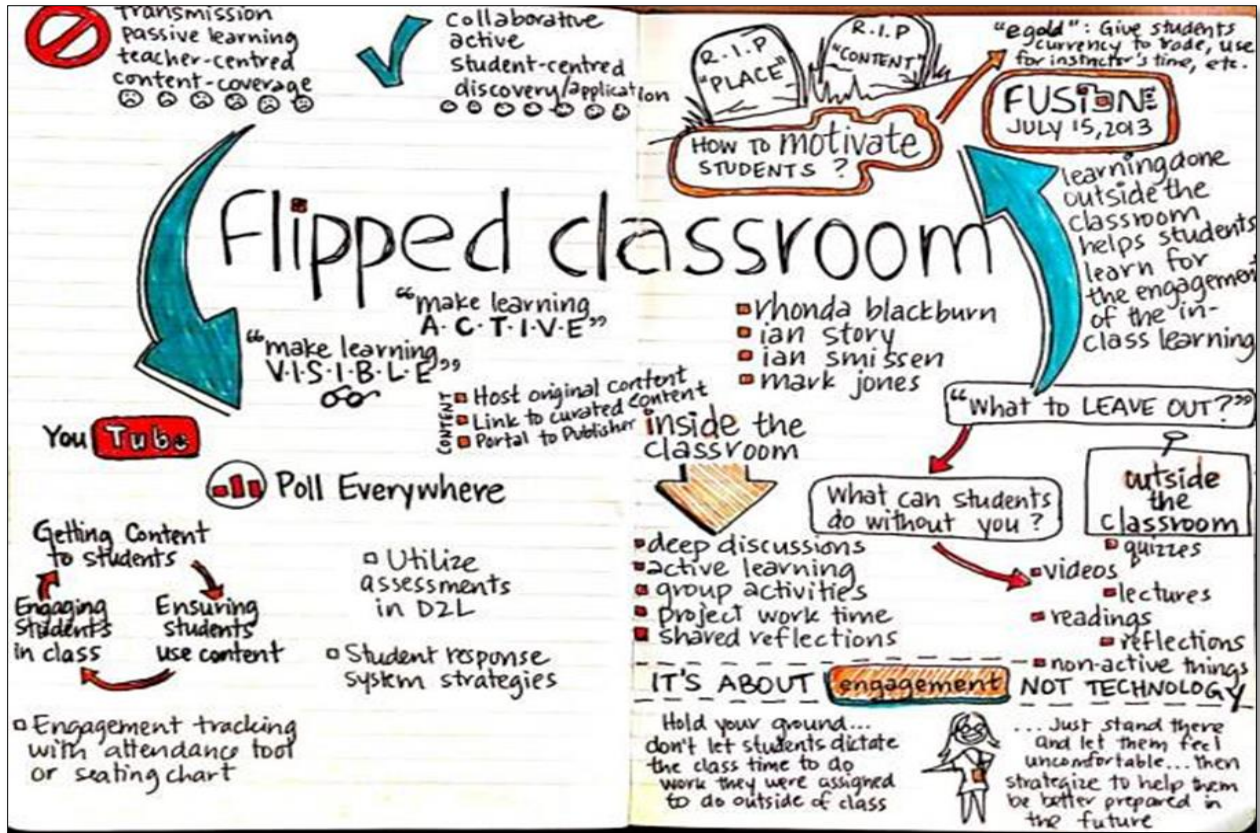 transmission
passive learning
teacher-centred
content-coverage
collaborative
active
student-centred
discovery/application
R.I.P
"PLACE"
R.I.P
"CONTENT"
"egold": Give students
currency to trade, use
for instructor's time, etc.
FUSiON
JULY 15, 2013
HOW TO motivate
STUDENTS?
learning done
outside the
classroom
helps students
learn for
the engagement
of the in-
class learning
Flipped classroom
"make learning
A.C.T.I.V.E"
"make learning
V.I.S.I.B.L.E"
rhonda blackburn
ian story
ian smissen
mark jones
CONTENT
Host original content
Link to curated content
Portal to Publisher
"What to LEAVE OUT?"
You Tube
Poll Everywhere
inside the
classroom
What can students
do without you?
outside
the
classroom
Getting Content
to students
Ensuring
students
use content
Engaging
students
in class
Utilize
assessments
in D2L
Student response
system strategies
Engagement tracking
with attendance tool
or seating chart
deep discussions
active learning
group activities
project work time
shared reflections
quizzes
videos
lectures
readings
reflections
non-active things
IT'S ABOUT engagement NOT TECHNOLOGY
Hold your ground...
don't let students dictate
the class time to do
work they were assigned
to do outside of class
....Just stand there
and let them feel
uncomfortable...then
strategize to help them
be better prepared in
the future